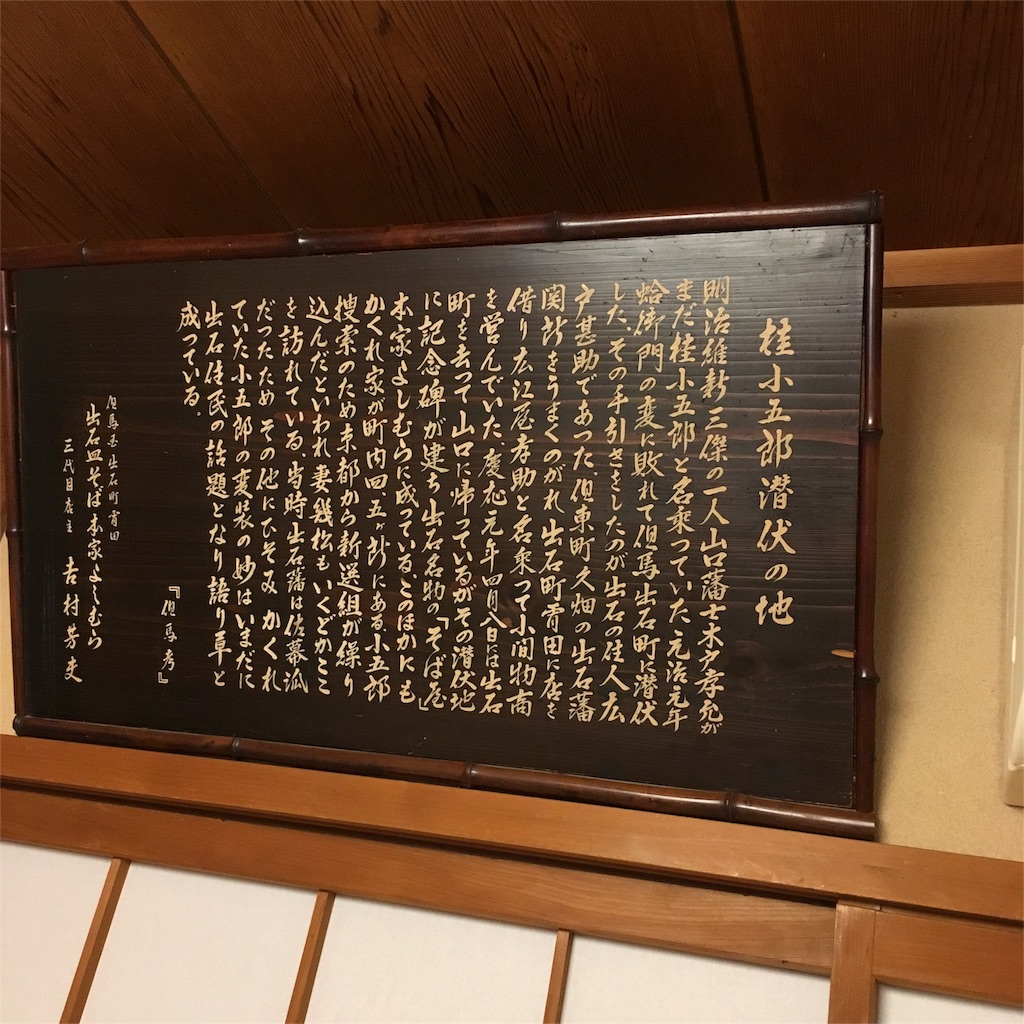 桂小五郎潜伏の地
明治維新三傑の一人山口藩士木戸孝允が
まだ桂小五郎と名乗っていた元治元年
蛤御門の変に敗れて但馬出石町に潜伏
した、その手引きをしたのが出石の住人広
戸甚助であった、但東町久畑の出石藩
関所をうまくのがれ出石町宵田に店を
借り広江屋孝助と名乗って小間物商
を営んでいた、慶応元年四月八日には出石
町を去って山口に帰っているがその潜伏地
に記念碑が建ち出石名物の「そば屋」
本家よしむらに成っている、このほかにも
かくれ家が町内四、五ヶ所にある小五郎
捜索のため京都から新選組が繰り
込んだといわれ妻幾松もいくどかここ
を訪れている、当時出石藩は佐幕派
だったため その他にひそみ かくれ
ていた小五郎の変装の妙はいまだに
出石住民の話題となり語り草と
成っている。
『但馬考』
但馬国出石町宵田
出石皿そば本家よしむら
三代目店主 吉村芳夫